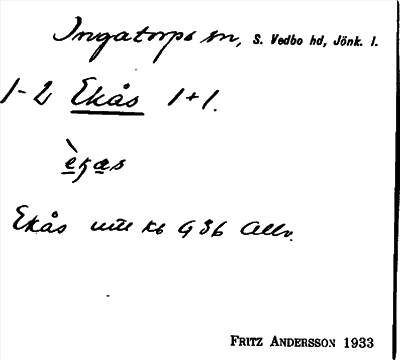 Ingatorps sn, S. Vedbo hd, Jönk. l.
1-2 Ekås 1+1.
Ekås kb G 36
FRITZ ANDERSSON 1933